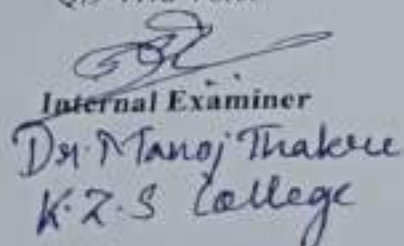 Internal Examiner
Dr. Manoj Thakre
K.Z.S College